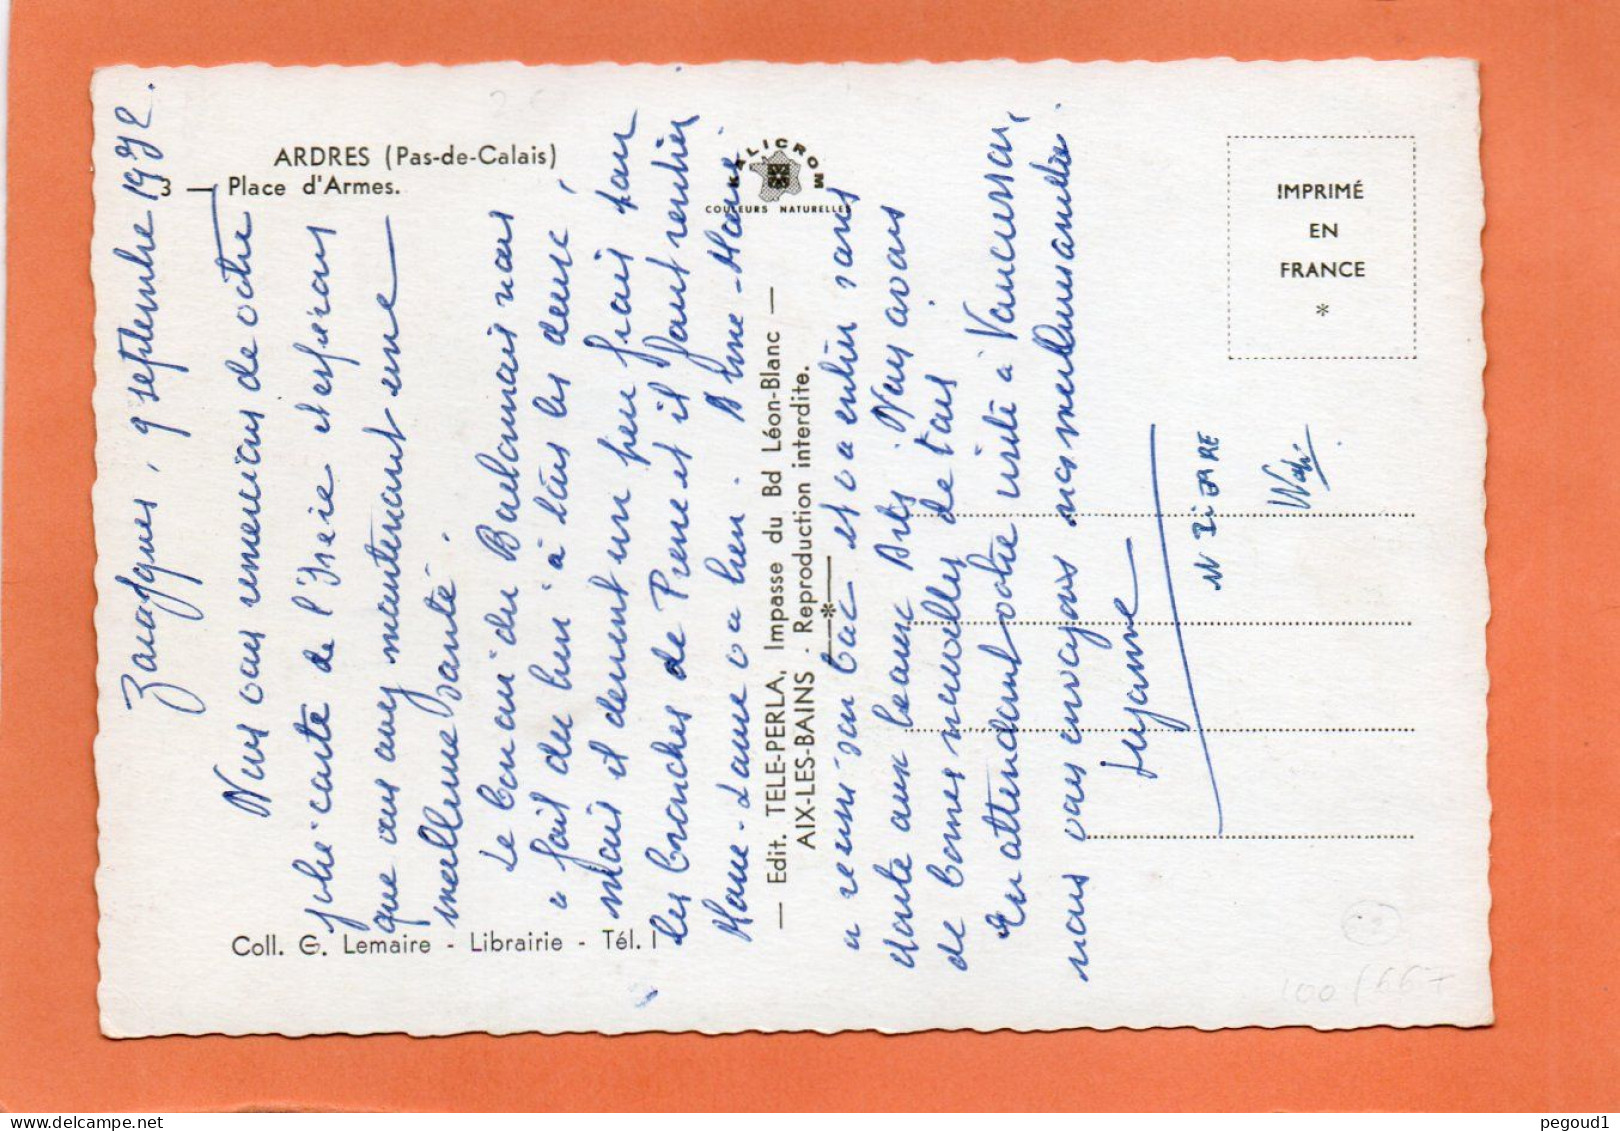 ARDRES (Pas-de-Calais)
3 — Place d'Armes.
KALICROM
COULEURS NATURELLES
IMPRIMÉ
EN
FRANCE
*
Zouafques, 9 septembre 1972.
Nous vous remercions de votre
jolie carte de l'Isère et espérons
que vous avez maintenant une
meilleure santé.
Le bon air du Boulonnais nous
a fait du bien à tous les deux,
mais il devient un peu frais sous
les branches de Pierre et il faut rentrer
Marie-Laure va bien. Anne-Marie
a réussi son bac et va entrer sans
doute aux beaux Arts. Nous avons
de bonnes nouvelles de tous
En attendant votre visite à
nous vous envoyons nos meilleures amitiés.
Suzanne
— Edit. TELE-PERLA, Impasse du Bd Léon-Blanc —
AIX-LES-BAINS - Reproduction interdite.
—*—
Coll. G. Lemaire - Librairie - Tél. 1
100/667
pegoud1